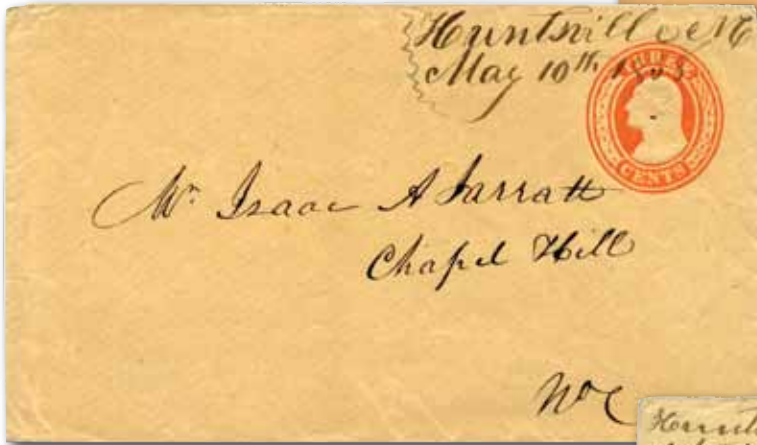 Huntsville NC
May 10th
THREE
CENTS
Mr Isaac A Jarratt
Chapel Hill
NoC